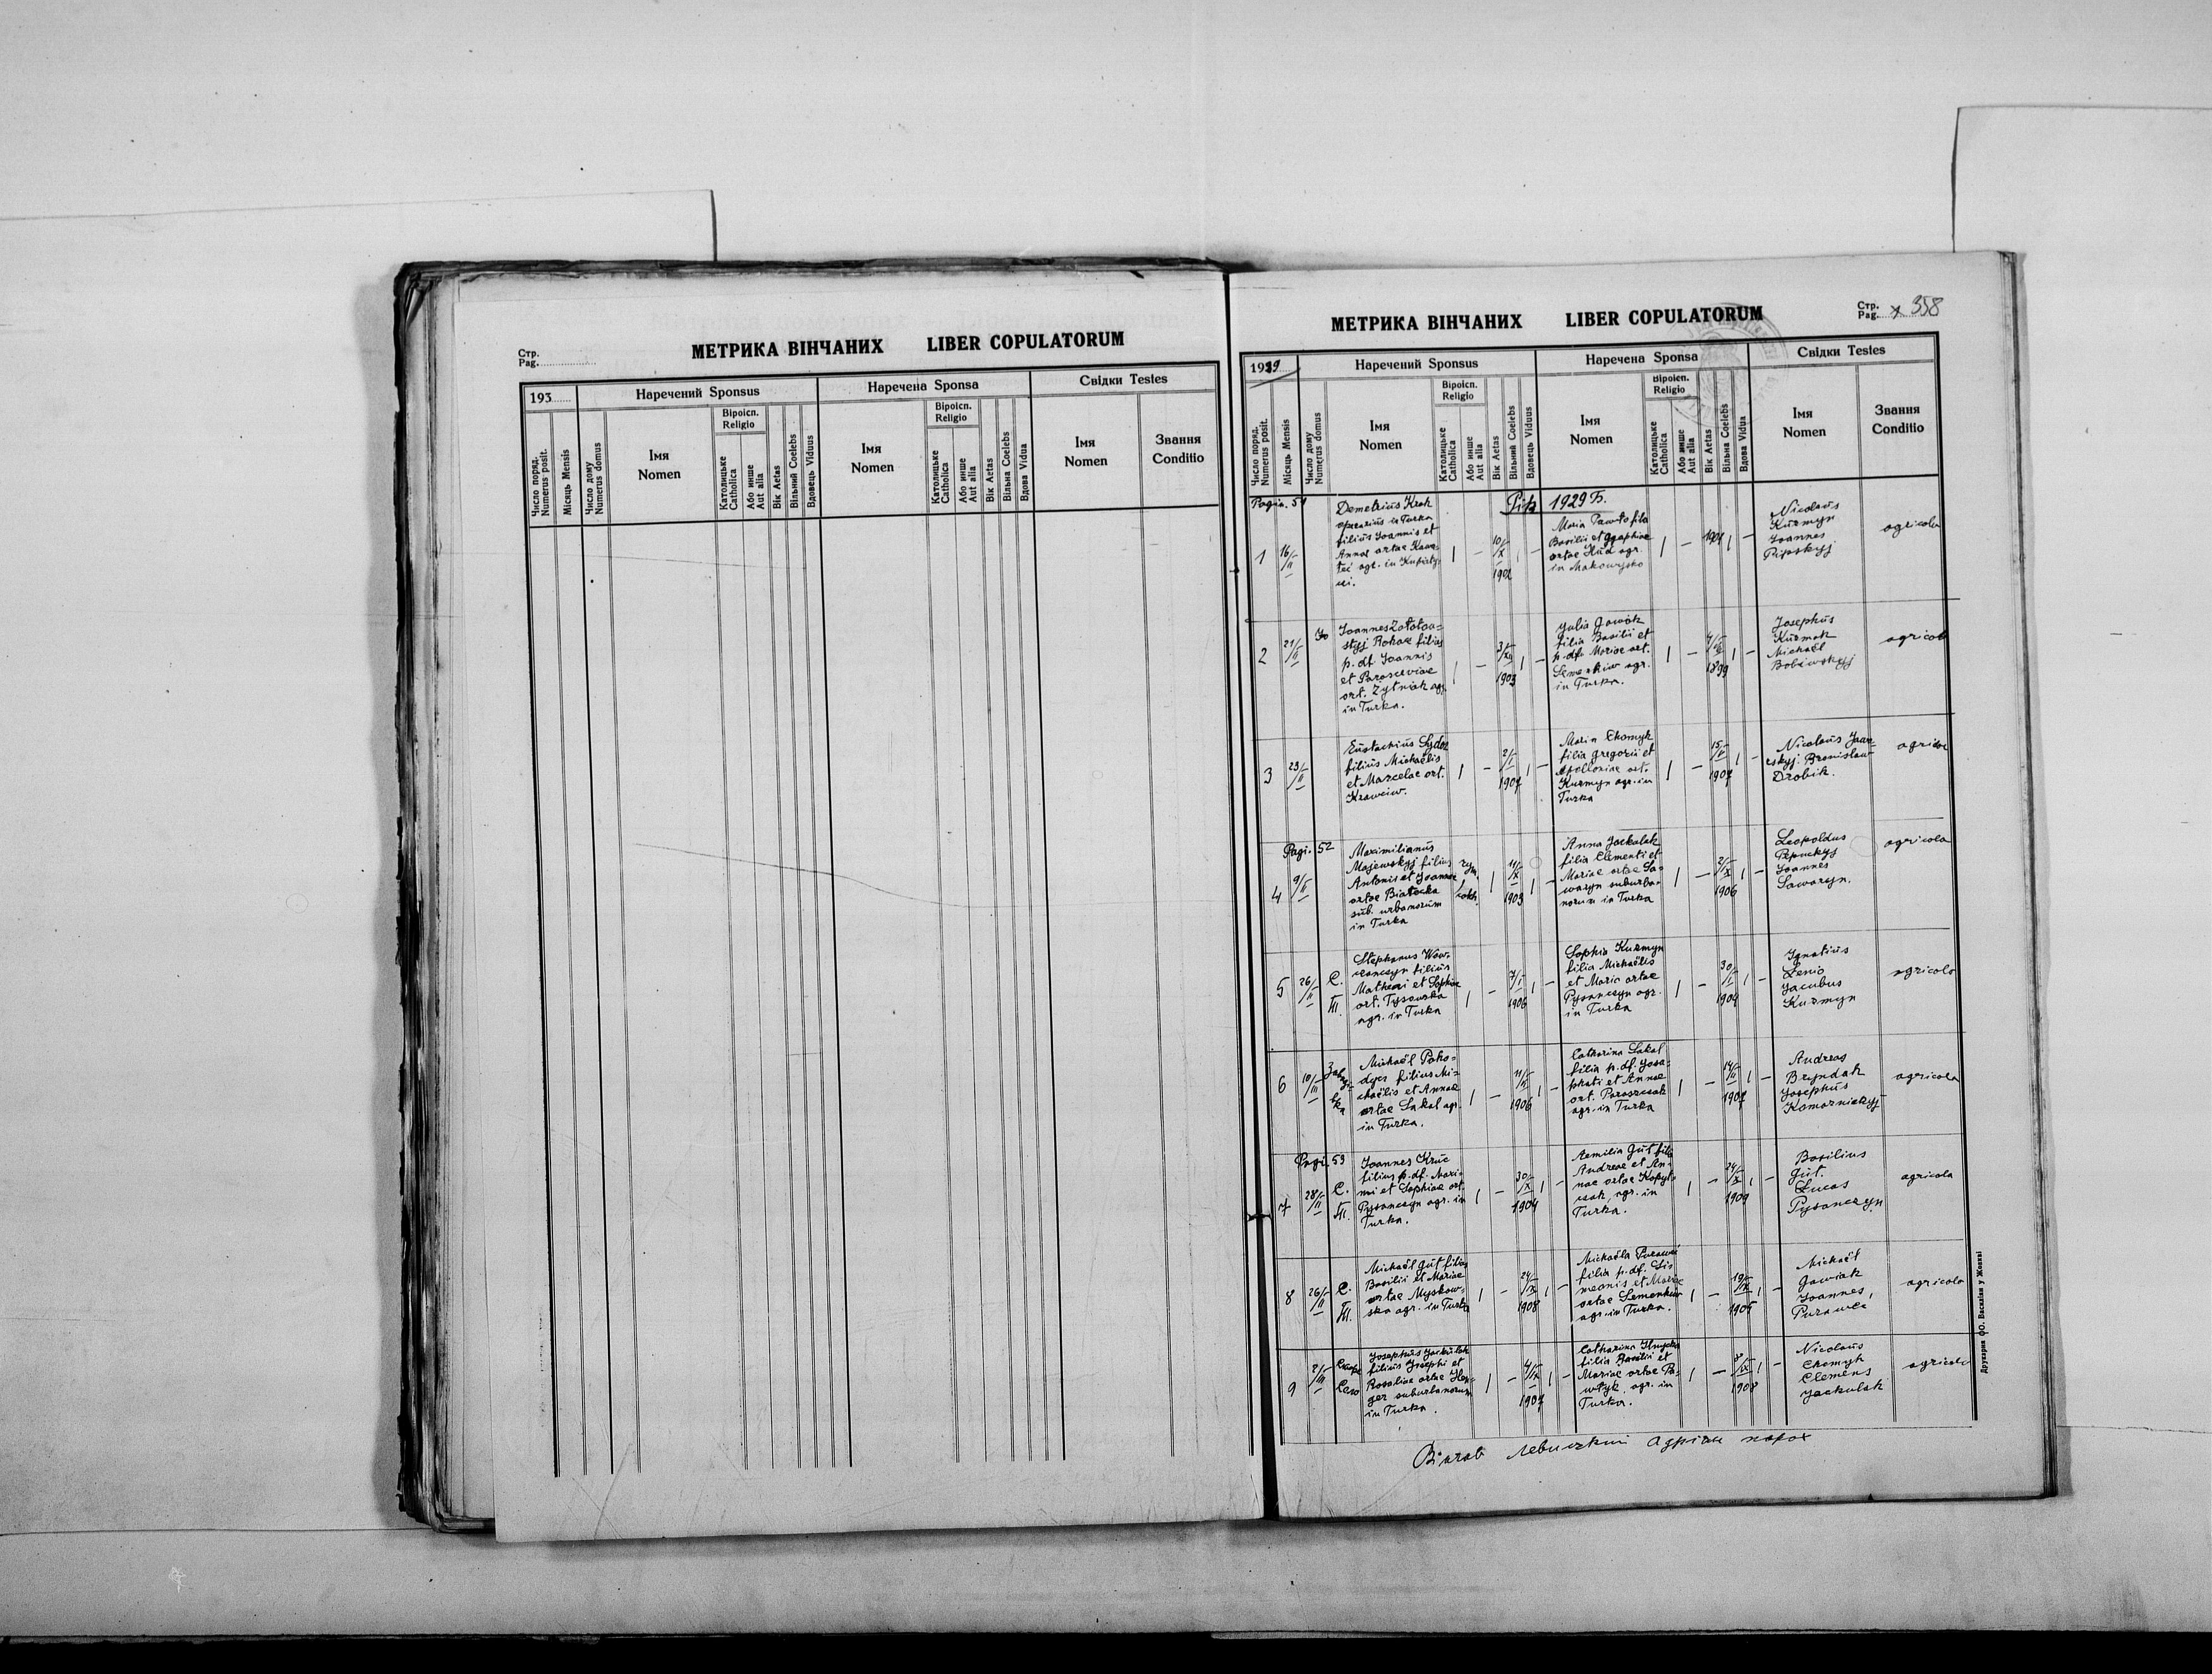 Стр.
Pag.
МЕТРИКА ВІНЧАНИХ LIBER COPULATORUM
193
Наречений Sponsus
Наречена Sponsa
Свідки Testes
Число поряд.
Numerus posit.
Місяць Mensis
Число дому
Numerus domus
Імя
Nomen
Віроісп.
Religio
Католицьке
Catholica
Або инше
Aut alia
Вік Aetas
Вільний Coelebs
Вдовець Viduus
Імя
Nomen
Віроісп.
Religio
Католицьке
Catholica
Або инше
Aut alia
Вік Aetas
Вільна Coelebs
Вдова Vidua
Імя
Nomen
Звання
Conditio
МЕТРИКА ВІНЧАНИХ LIBER COPULATORUM
Стр.
Pag. 358
1929
Наречений Sponsus
Наречена Sponsa
Свідки Testes
Число поряд.
Numerus posit.
Місяць Mensis
Число дому
Numerus domus
Імя
Nomen
Віроісп.
Religio
Католицьке
Catholica
Або инше
Aut alia
Вік Aetas
Вільний Coelebs
Вдовець Viduus
Імя
Nomen
Віроісп.
Religio
Католицьке
Catholica
Або инше
Aut alia
Вік Aetas
Вільна Coelebs
Вдова Vidua
Імя
Nomen
Звання
Conditio
Pagin. 51
Рік 1929 Б.
1
16/II
Demetrius Krak
in Turka
filius Joannis et
Annae ortae
agr. in
10/X
1902
Maria Pawło filia
Basilii et Agaphiae
ortae Hud agr.
in Makowysko
1904
Nicolaus
Kuzmyn
Joannes
Pipskyj
agricola
2
21/II
Joannes
styj Rohac filius
p. df. Joannis
et Parasceviae
ort. Zytniak agr.
in Turka.
3/XII
1903
Julia Jawok
filia Basilii et
p. df. Mariae ort.
Semenkiw agr.
in Turka.
1899
Josephus
Kuzmak
Michaël
Bobiwskyj
agricola
3
23/II
Eustachius Sydor
filius Michaëlis
et Marcelae ort.
Krawciw.
2/I
1907
Maria Chomyk
filia Gregorii et
Apolloniae ort.
Kuzmyn agr. in
Turka
15/II
1907
Nicolaus Jawor-
skyj. Bronislaus
Drobik.
agricola
Pagi. 52
4
9/II
Maximilianus
Majewskyj filius
Antonii et Joannae
ortae Białecka
sub. urbanorum
in Turka
11/X
1903
Anna Jackulak
filia Clementi et
Mariae ortae Sa-
waryn suburba-
norum in Turka
2/X
1906
Leopoldus
Pepuckyj
Joannes
Sawaryn.
agricola
5
26/II
C.
III.
Stephanus Waw-
filius
Mathaei et Sophiae
ort. Tysowska
agr. in Turka
7/I
1906
Sophia Kuzmyn
filia Michaëlis
et Marie ortae
Pysanczyn agr.
in Turka
30/I
1904
Ignatius
Lenio
Jacobus
Kuzmyn
agricola
6
10/III
Michaël Poho-
filius Mi-
chaëlis et Annae
ortae Sakal agr.
in Turka.
11/II
1906
Catharina Sakal
filia p. df. Josa-
phati et Annae
ort. Paraszczak
agr. in Turka
14/II
1907
Andreas
Bryndak
Josephus
Komarnickyj
agricola
Pagi. 53
7
28/II
C.
III.
Joannes Kruc
filius p. df. Maxi-
mi et Sophiae ort.
Pysanczyn agr. in
Turka.
30/IX
1904
Aemilia Gut filia
Andreae et An-
nae ortae Kopyt-
czak, agr. in
Turka.
24/IX
1909
Basilius
Gut.
Lucas
Pysanczyn
agricola
8
26/II
C.
III.
Michaël Gut filius
Basilii et Mariae
ortae Myskow-
ska agr. in Turka
24/IX
1908
Michaëla Purawec
filia p. df. Si-
meonis et Mariae
ortae Semenkiw
agr. in Turka.
19/IX
1905
Michaël
Jawiak
Joannes,
Purawec
agricola
9
2/III
Josephus Jackulak
filius Josephi et
Rosaliae ortae
suburbanorum
in Turka.
4/IX
1907
Catharina Ilnycka
filia Basilii et
Mariae ortae Pa-
wlyk, agr. in
Turka.
1908
Nicolaus
Chomyk
Clemens
Jackulak
agricola
Вінчав Левицкий Адріан парох
Друкарня ОО. Василіян у Жовкві